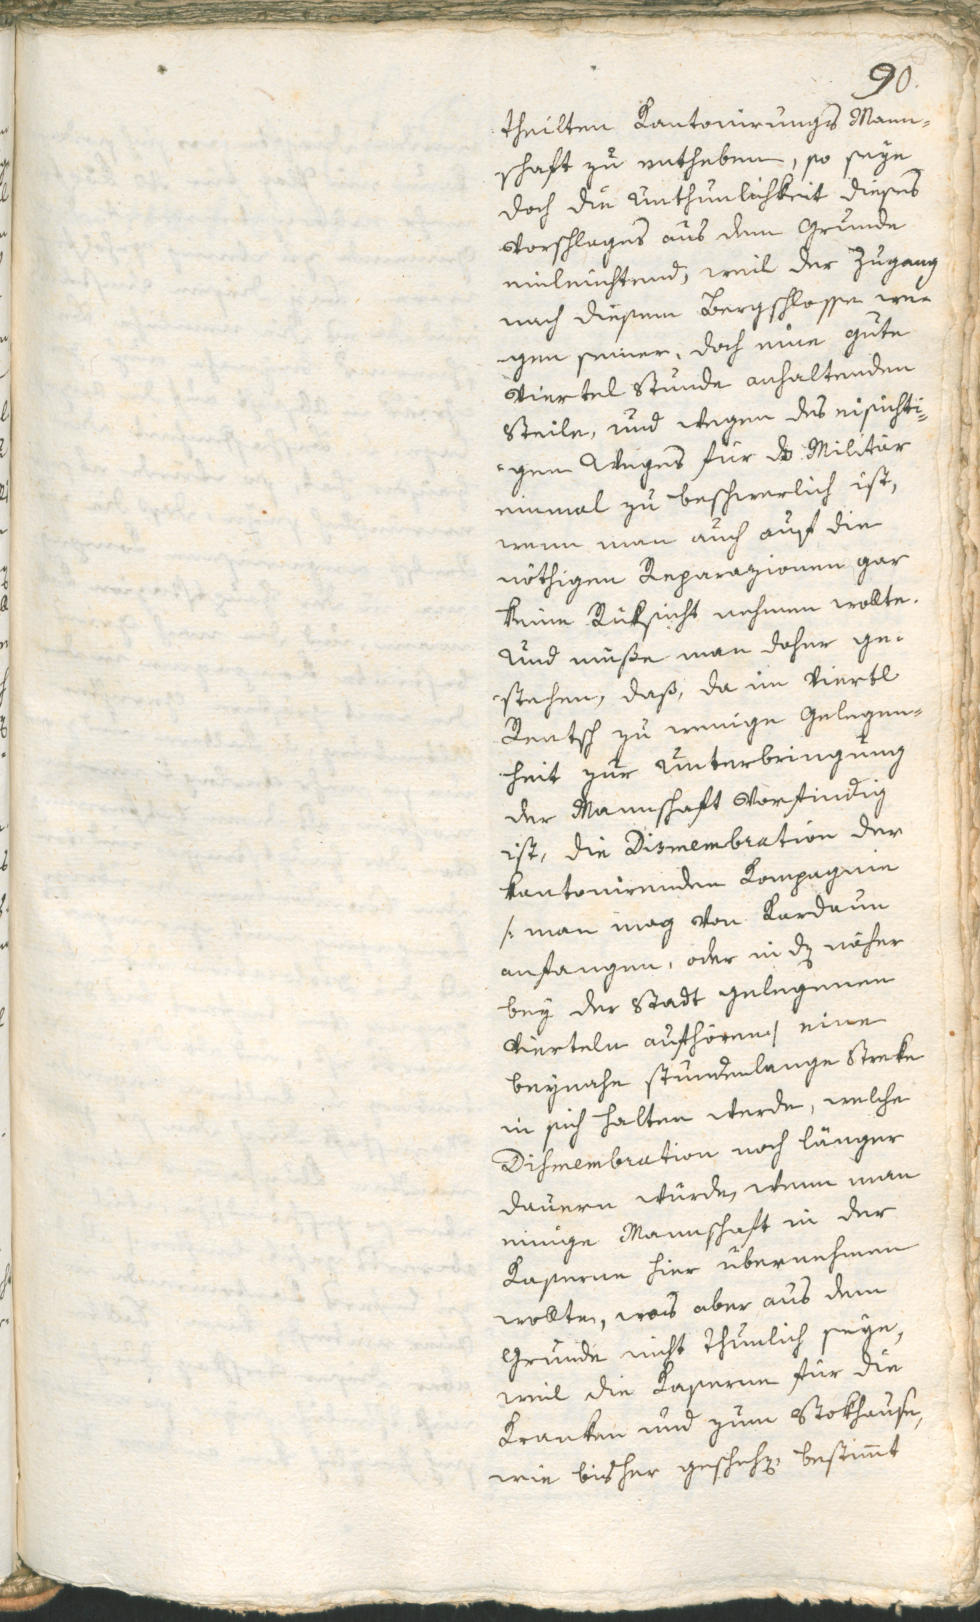 90.
theilten Kantonirungs Mann-
schaft zu entheben, so seye
doch die Unthunlichkeit dieses
Vorschlages aus dem Grunde
einleuchtend, weil der Zugang
nach diesem Bergschlosse we-
gen seiner, doch eine gute
Viertel Stunde anhaltenden
Steile, und wegen des eisichti-
gen Weeges für das Militär
einmal zu beschwerlich ist,
wenn man auch auf die
nöthigen Reparazionen gar
keine Rüksicht nehmen wollte.
Und müße man daher ge-
stehen, daß, da im Viertl
Rentsch zu wenige Gelegen-
heit zur Unterbringung
der Mannschaft vorfindig
ist, die Dismembration der
kantonirenden Kompagnie
/: man mag von Kardaun
anfangen, oder in dz näher
bey der Stadt gelegenen
Vierteln aufhören/ eine
beynahe stundenlange Streke
in sich halten werde, welche
Dismembration noch länger
dauern würde, wenn man
einige Mannschaft in der
Kaserne hier übernehmen
wollte, was aber aus dem
Grunde nicht thunlich seye,
weil die Kaserne für die
Kranken und zum Stokhause,
wie bisher geschehen, bestimt